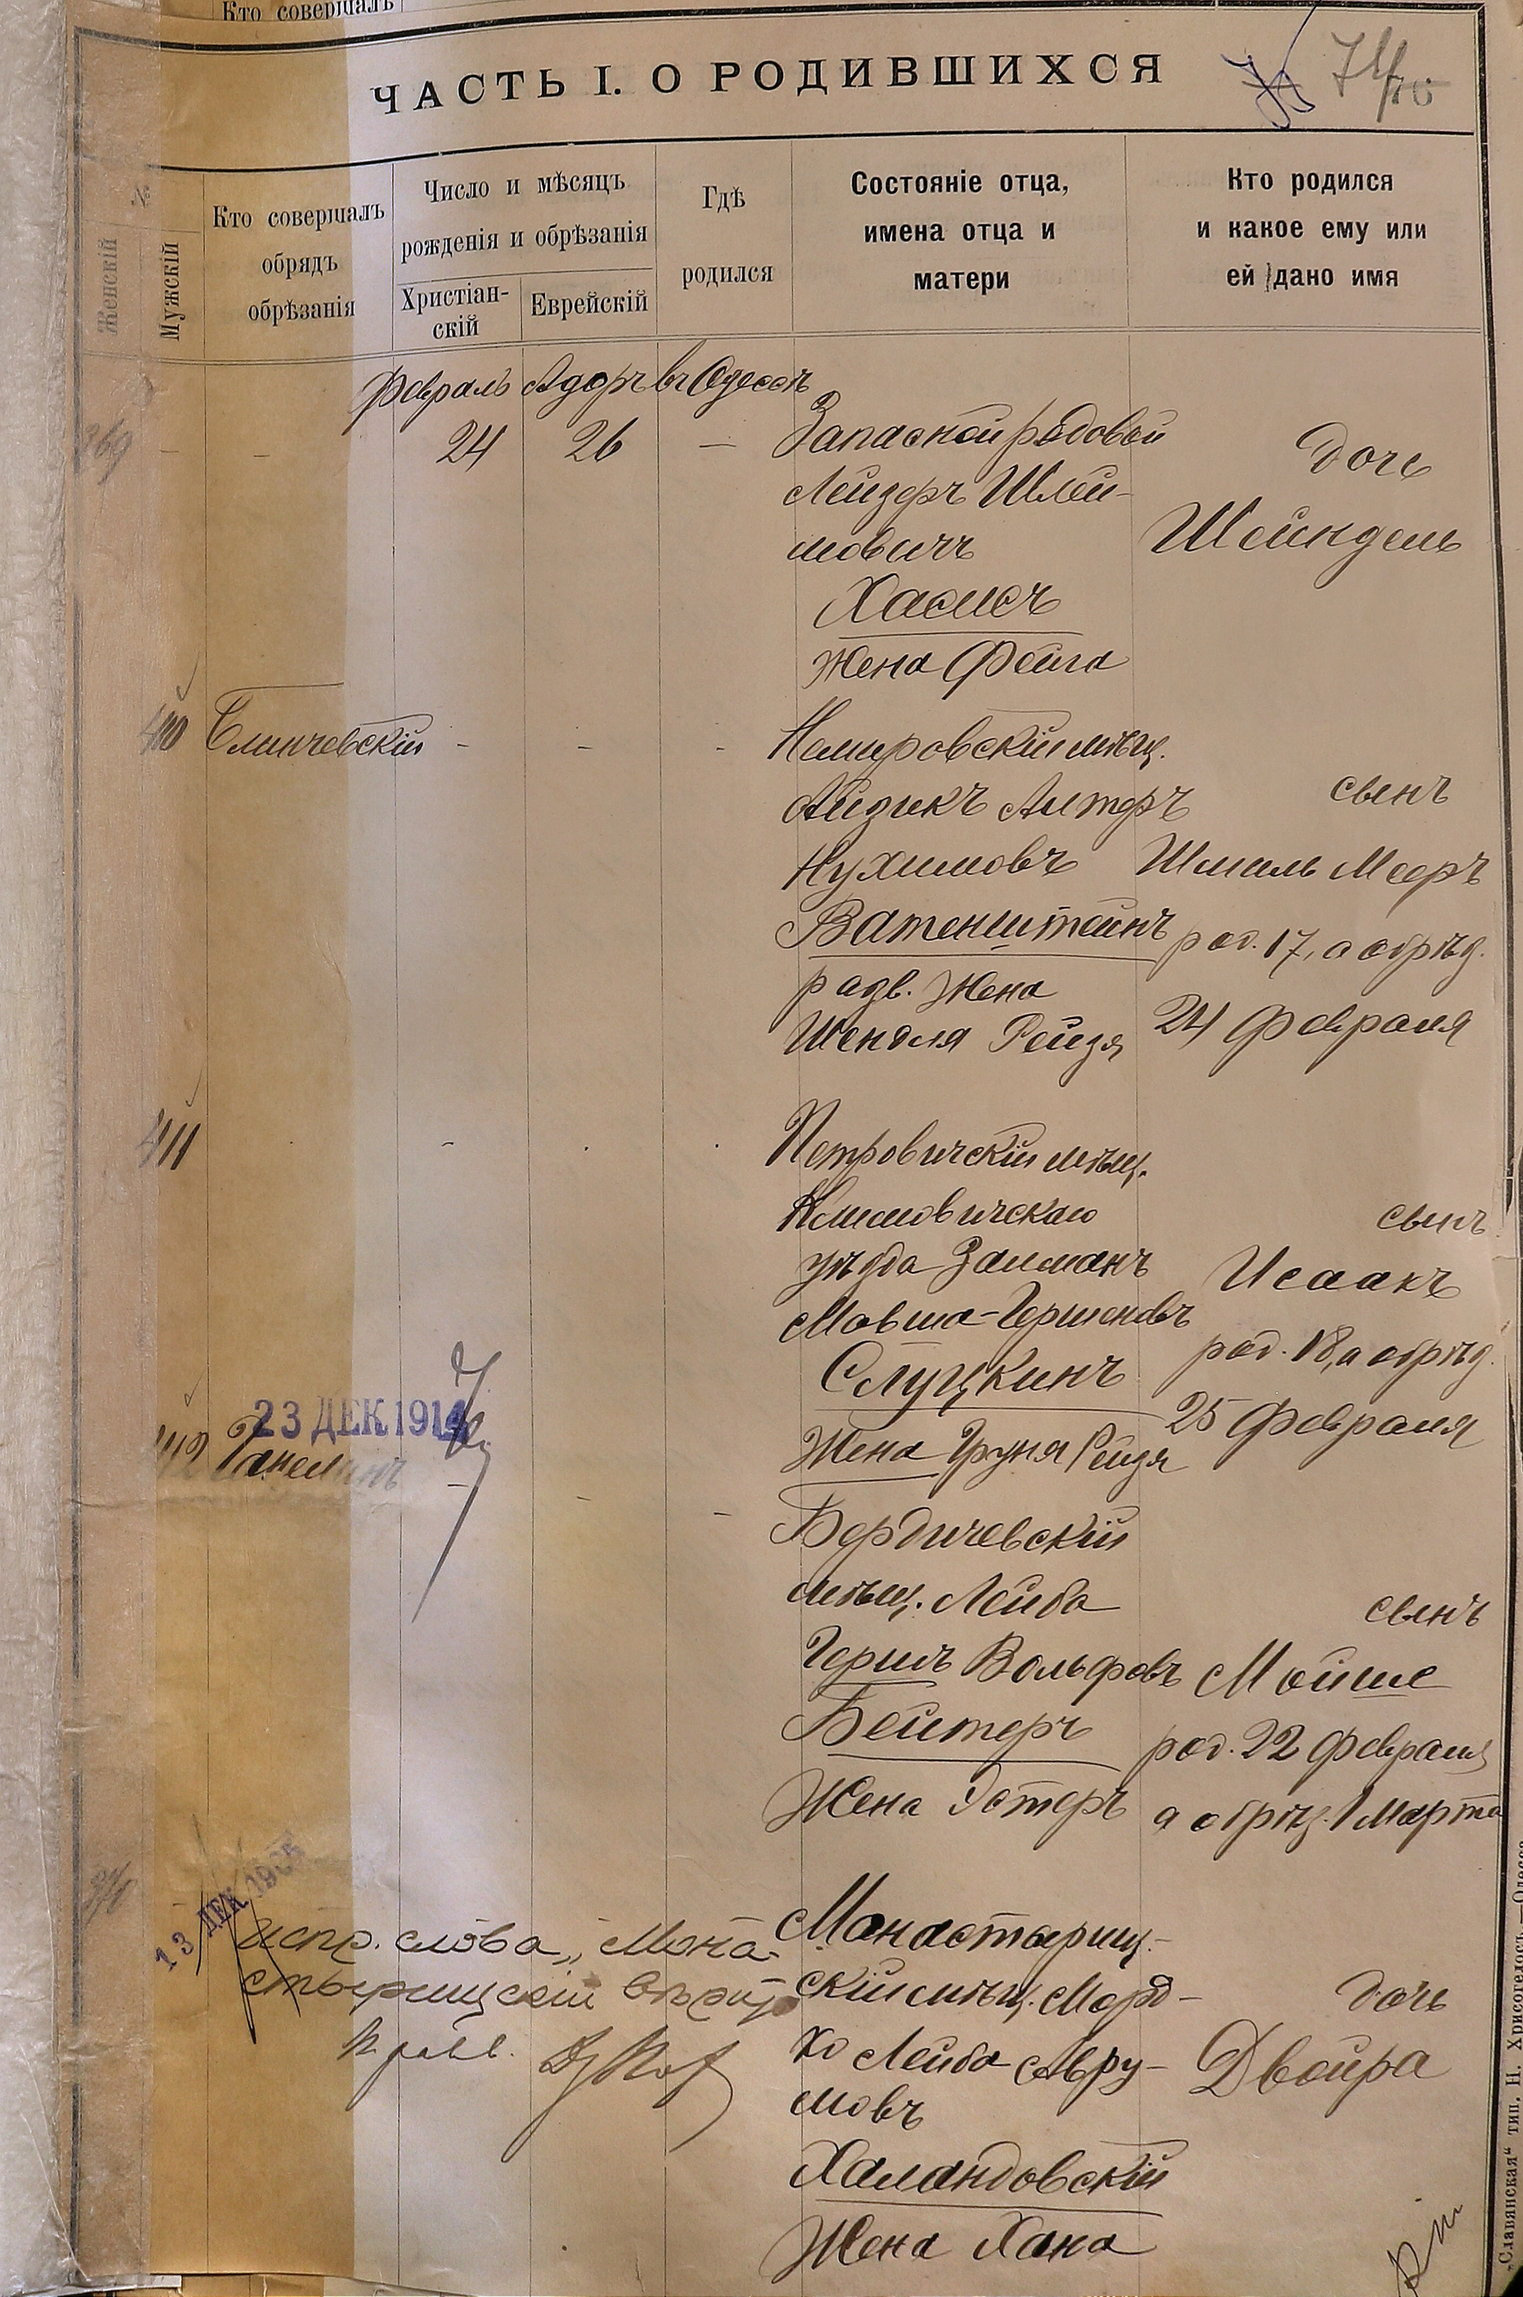 Кто совершалъ
ЧАСТЬ I. О РОДИВШИХСЯ
№
Женскій
Мужскій
Кто совершалъ
обрядъ
обрѣзанія
Число и мѣсяцъ
рожденія и обрѣзанія
Христіан-
скій
Еврейскій
Гдѣ
родился
Состояніе отца,
имена отца и
матери
Кто родился
и какое ему или
ей дано имя
Февраль Адоръ въ Одессѣ
369 - - 24 26 —
Запасной рядовой
Лейзеръ Шлей-
мовичъ
Хасисъ
жена Фейга
дочь
Шейндель
410 - - -
Немировскій мѣщ.
Айзикъ Алтеръ
Нухимовъ
Ватенштейнъ
разв. жена
Шендля Рейзя
сынъ
Шмиль Мееръ
род. 17, а обрѣз.
24 Февраля
411
Петровичскій мѣщ.
Климовичскаго
уѣзда Залманъ
Мовша-Гершоновъ
Слуцкинъ
Жена Груня Рейзя
сынъ
Исаакъ
род. 18, а обрѣз.
25 Февраля
23 ДЕК 1914
Бердичевскій
мѣщ. Лейба
Гершъ Вольфовъ
Бейтеръ
Жена Эстеръ
сынъ
Мойше
род. 22 Февраля
а обрѣз. 1 Марта
13 ДЕК 19
Испр. слова „Мона-
стырищскій
Монастырищ-
скій мѣщ. Морд-
хо Лейба Авру-
мовъ
Халандовскій
Жена Хана
дочь
Двойра
„Славянская“ тип. Н. Хрисогелосъ.—Одесса